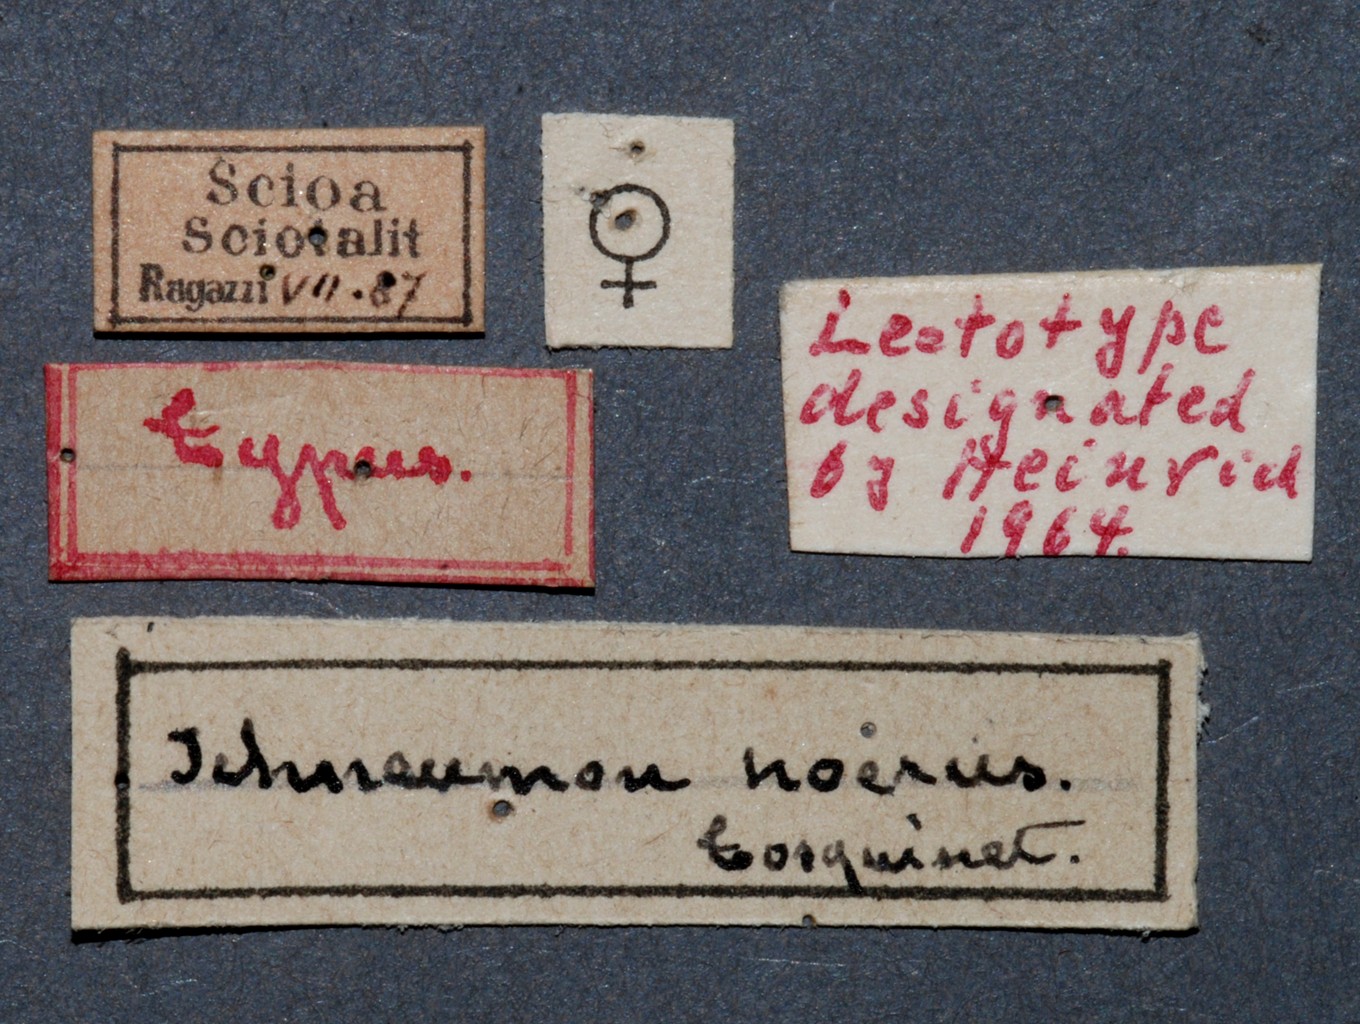 Scioa
Sciotalit
Ragazzi VII.87
♀
Lectotype
designated
by Heinrich
1964.
Typus.
Ichneumon noerus.
Tosquinet.